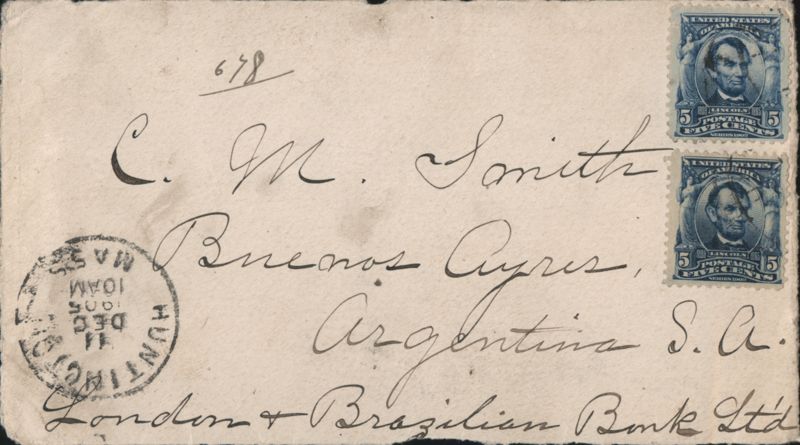 678
UNITED STATES
OF AMERICA
5 LINCOLN 5
POSTAGE
FIVE CENTS
SERIES 1902
UNITED STATES
OF AMERICA
5 LINCOLN 5
POSTAGE
FIVE CENTS
SERIES 1902
C. M. Smith
Buenos Ayres,
Argentina S. A.
London & Brazilian Bank Ltd
HUNTINGTON
11
DEC
1905
10AM
MASS